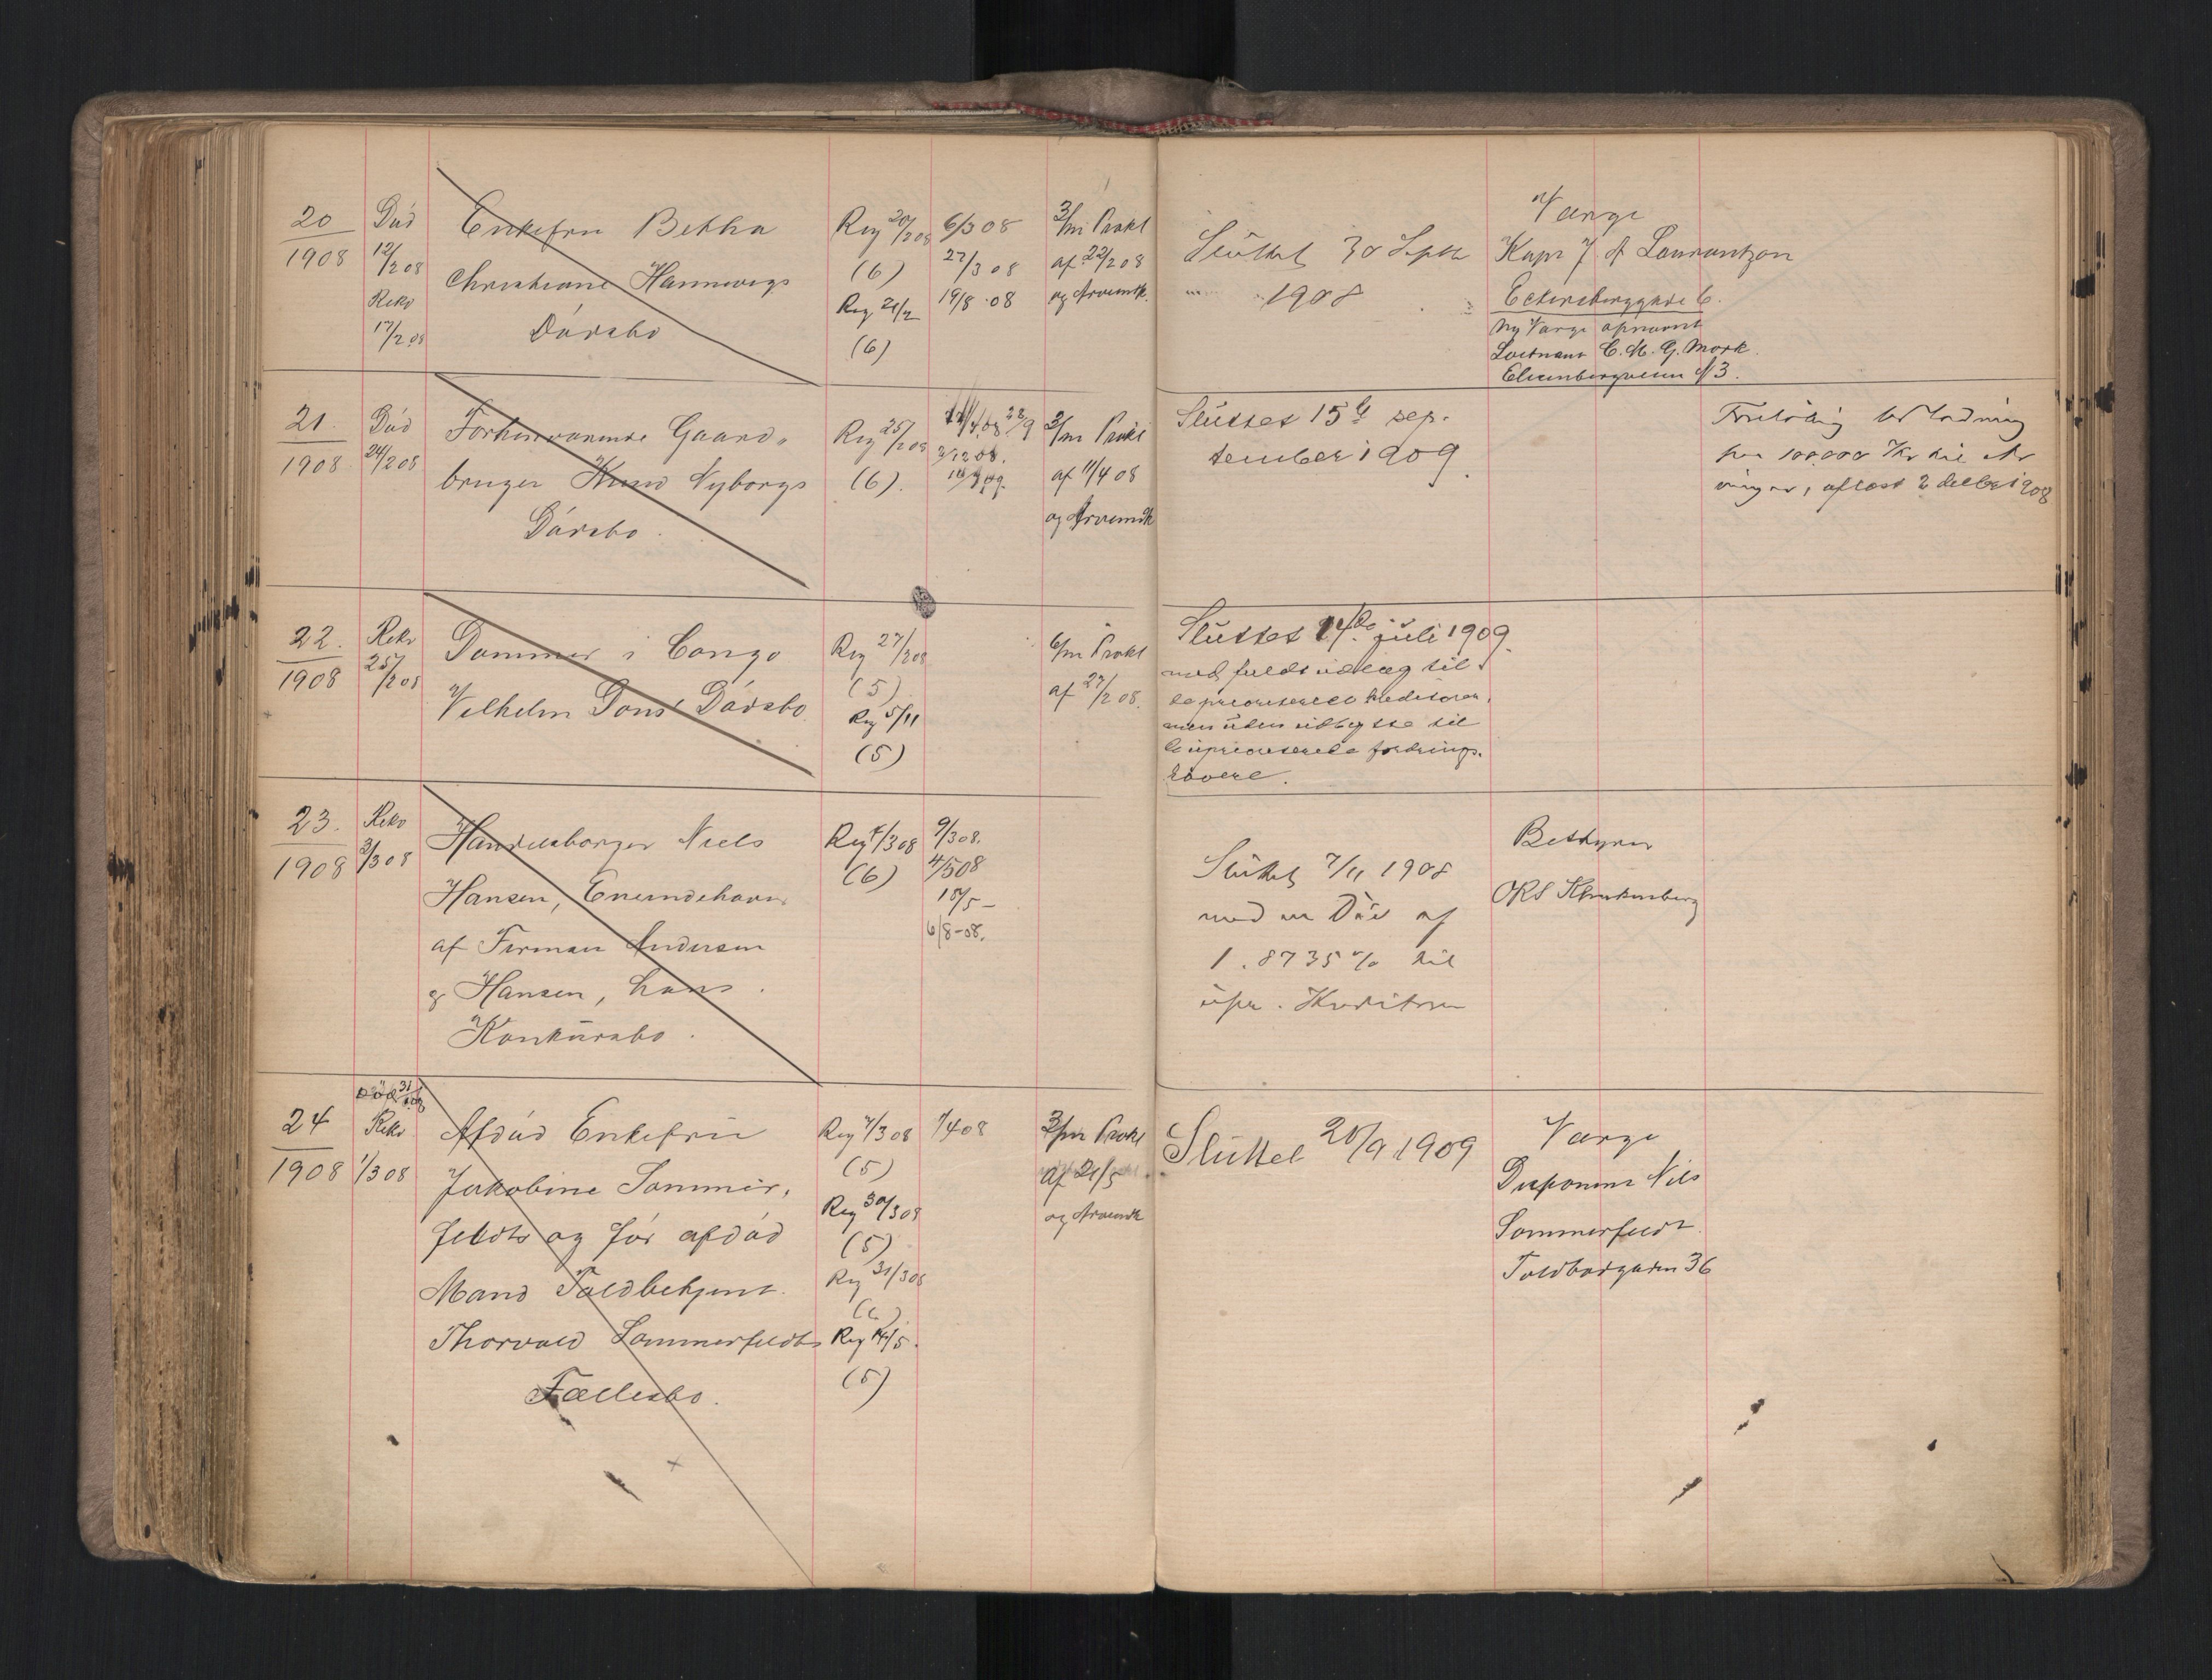 20
1908
Död
12/2 08
Rekv
17/2 08
Enkefru Betha
Christiane Hannevigs
Dödsbo
Reg 20/2 08
(6)
Reg 21/2
(6)
6/3 08
27/3 08
19/8 08
3/m Prokl
af 22/2 08
og Arvemdk.
Sluttet 30 Septr
1908
Værge
Kapt J A Laurantzon
Eckersberggade 6.
Ny Værge opnævnt
Løitnant C. M. G. Mork
Elisenbergveien No 3.
21.
1908
Död
24/2 08
Forhenværende Gaard-
bruger Knud Nyborgs
Dödsbo.
Reg 25/2 08
(6).
3/12 08.
3/m Prokl
af 11/4 08
og Arvemdk
Sluttet 15de sep-
tember 1909.
Foreløbig Udlodning
paa 100,000 Kr til Ar
vinger, aflæst 2 decbr 1908
22.
1908
Rekv
25/2 08
Dommer i Congo
Vilhelm Dons' Dödsbo
Reg 27/2 08
(5)
Reg 5/11
(5)
6/m Prokl
af 27/2 08.
Sluttet 14de juli 1909.
med fuldt udlæg til
de prioriterede kreditorer,
men uden udbytte til
de uprioriterede fordrings-
havere.
23.
1908
Rekv
3/3 08
Handelsborger Niels
Hansen, Eneindehaver
af Firmaet Andersen
& Hansen, hans
Konkursbo.
Reg 4/3 08
(6)
9/3 08.
4/5 08
18/5 –
6/8-08.
Sluttet 7/11 1908
med en Div af
1.8735 % til
upr. Kreditorer
Bestyrer
ORS Klinkenberg
24
1908
Död 31/1 08
Rekv
1/3 08
Afdød Enkefru
Jakobine Sommer-
feldts og før afdød
Mand Toldbetjent
Thorvald Sommerfeldts
Fællesbo.
Reg 7/3 08
(5)
Reg 30/3 08
(5)
Reg 31/3 08
(6)
Reg 14/5.
(5)
7/4 08
3/m Prokl
af 21/5
og Arvemdk
Sluttet 20/9 1909
Værge
Disponent Nils
Sommerfeldt
Toldbodgaden 36